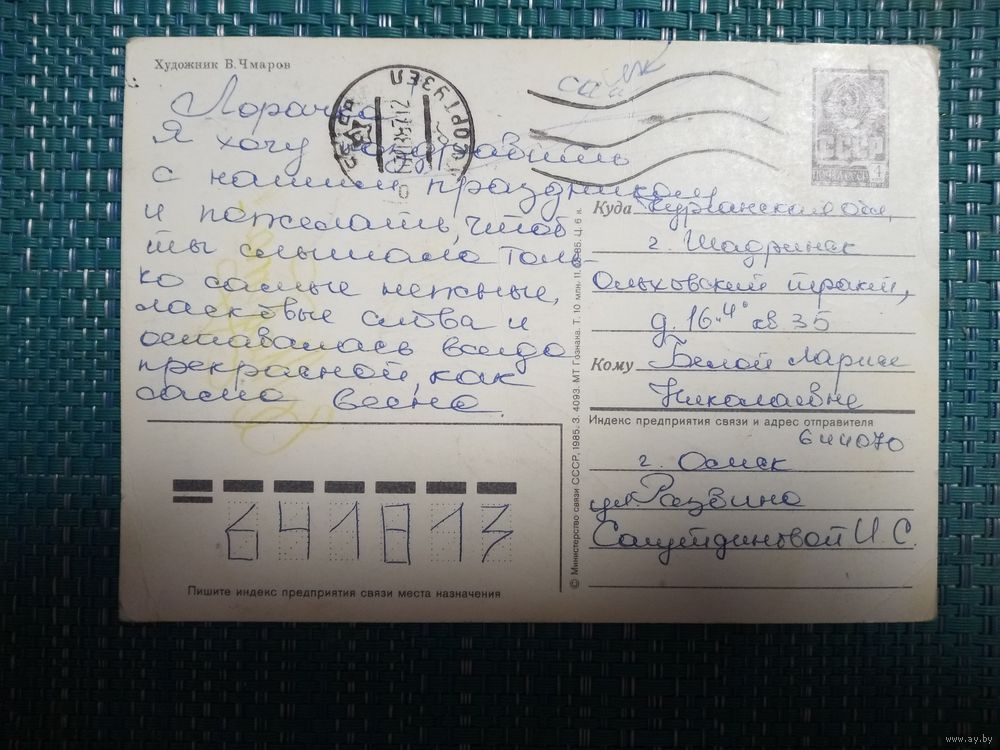 Художник В.Чмаров
Лорочка
Я хочу поздравить
с нашим праздником
и пожелать, чтоб
ты слышала толь-
ко самые нежные,
ласковые слова и
оставалась всегда
прекрасной, как
сама весна.
СССР
4
Куда Курганская обл,
г. Шадринск
Ольховский тракт,
д. 16 "А" кв 35
Кому Белой Ларисе
Николаевне
Индекс предприятия связи и адрес отправителя
644070
г. Омск
ул
И. С.
641813
Пишите индекс предприятия связи места назначения
© Министерство связи СССР, 1985. З. 4093. МТ Гознака. Т. 10 млн. Ц. 6 к.
www.ay.by